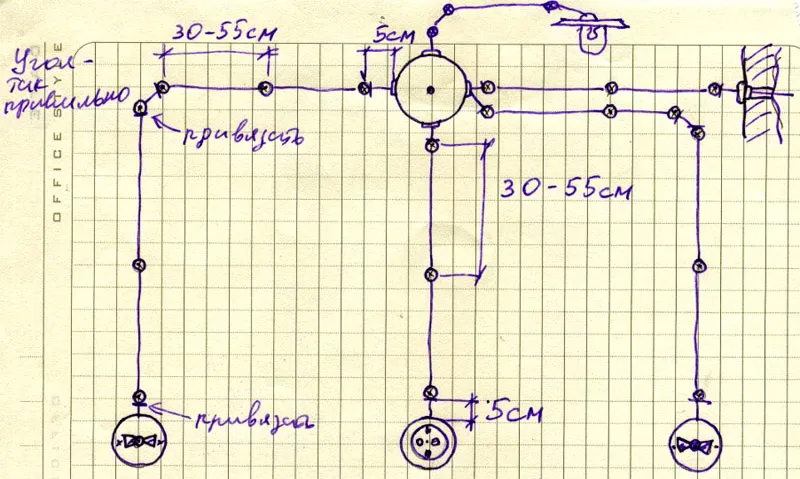 30-55см
5см
Угол-
так
правильно
привязать
30-55см
привязка
5см
OFFICE STYLE